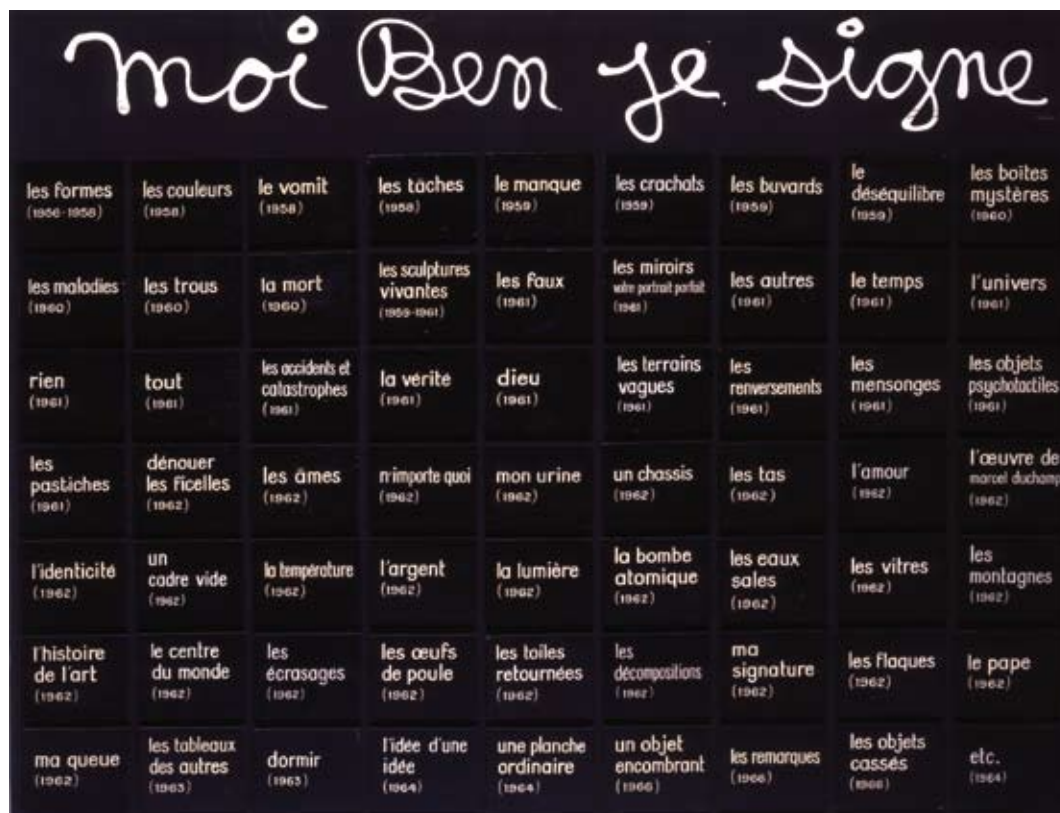 moi Ben je signe
les formes
(1956-1958)
les couleurs
(1958)
le vomit
(1958)
les tâches
(1958)
le manque
(1959)
les crachats
(1959)
les buvards
(1959)
le
déséquilibre
(1959)
les boîtes
mystères
(1960)
les maladies
(1960)
les trous
(1960)
la mort
(1960)
les sculptures
vivantes
(1959-1961)
les faux
(1961)
les miroirs
votre portrait parfait
(1961)
les autres
(1961)
le temps
(1961)
l'univers
(1961)
rien
(1961)
tout
(1961)
les accidents et
catastrophes
(1961)
la vérité
(1961)
dieu
(1961)
les terrains
vagues
(1961)
les
renversements
(1961)
les
mensonges
(1961)
les objets
psychotactiles
(1961)
les
pastiches
(1961)
dénouer
les ficelles
(1962)
les âmes
(1962)
n'importe quoi
(1962)
mon urine
(1962)
un chassis
(1962)
les tas
(1962)
l'amour
(1962)
l'œuvre de
marcel duchamp
(1962)
l'identicité
(1962)
un
cadre vide
(1962)
la température
(1962)
l'argent
(1962)
la lumière
(1962)
la bombe
atomique
(1962)
les eaux
sales
(1962)
les vitres
(1962)
les
montagnes
(1962)
l'histoire
de l'art
(1962)
le centre
du monde
(1962)
les
écrasages
(1962)
les œufs
de poule
(1962)
les toiles
retournées
(1962)
les
décompositions
(1962)
ma
signature
(1962)
les flaques
(1962)
le pape
(1962)
ma queue
(1962)
les tableaux
des autres
(1963)
dormir
(1963)
l'idée d'une
idée
(1964)
une planche
ordinaire
(1964)
un objet
encombrant
(1966)
les remarques
(1966)
les objets
cassés
(1966)
etc.
(1964)